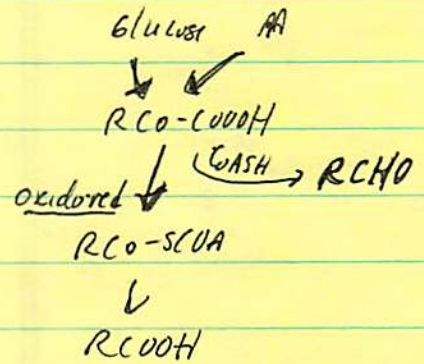 Glucose AA
RCO-COOOH
CoASH
RCHO
oxidored
RCO-SCOA
RCOOH